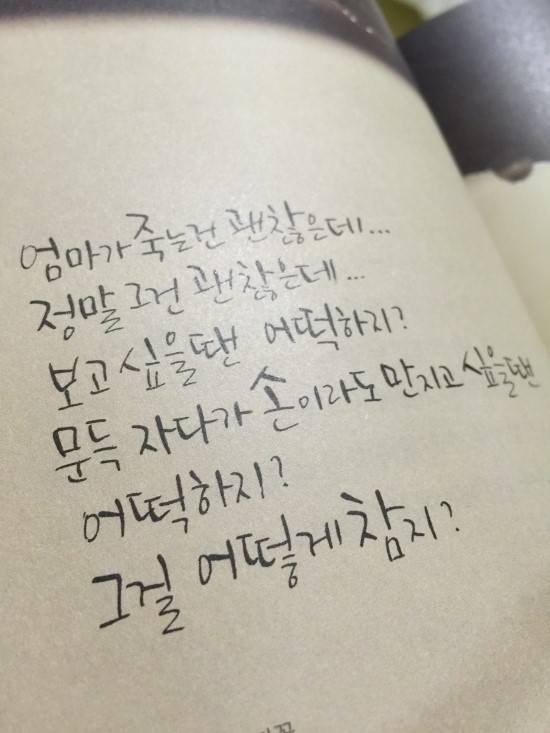 엄마가 죽는건 괜찮은데...
정말 그건 괜찮은데...
보고싶을땐 어떡하지?
문득 자다가 손이라도 만지고 싶을땐
어떡하지?
그걸 어떻게 참지?